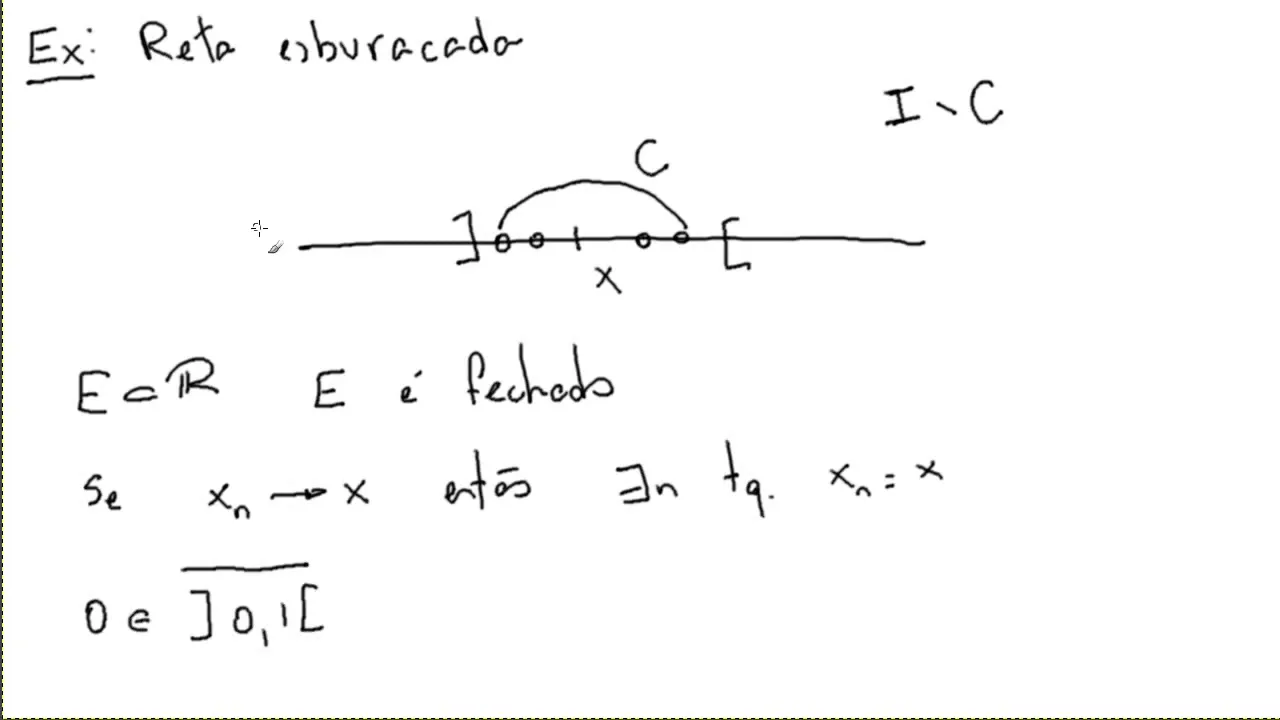 Ex: Reta esburacada
I \ C
C
] [
x
E ⊂ ℝ E é fechado
Se xₙ → x então ∃n tq. xₙ = x
0 ∈ \overline{]0,1[}